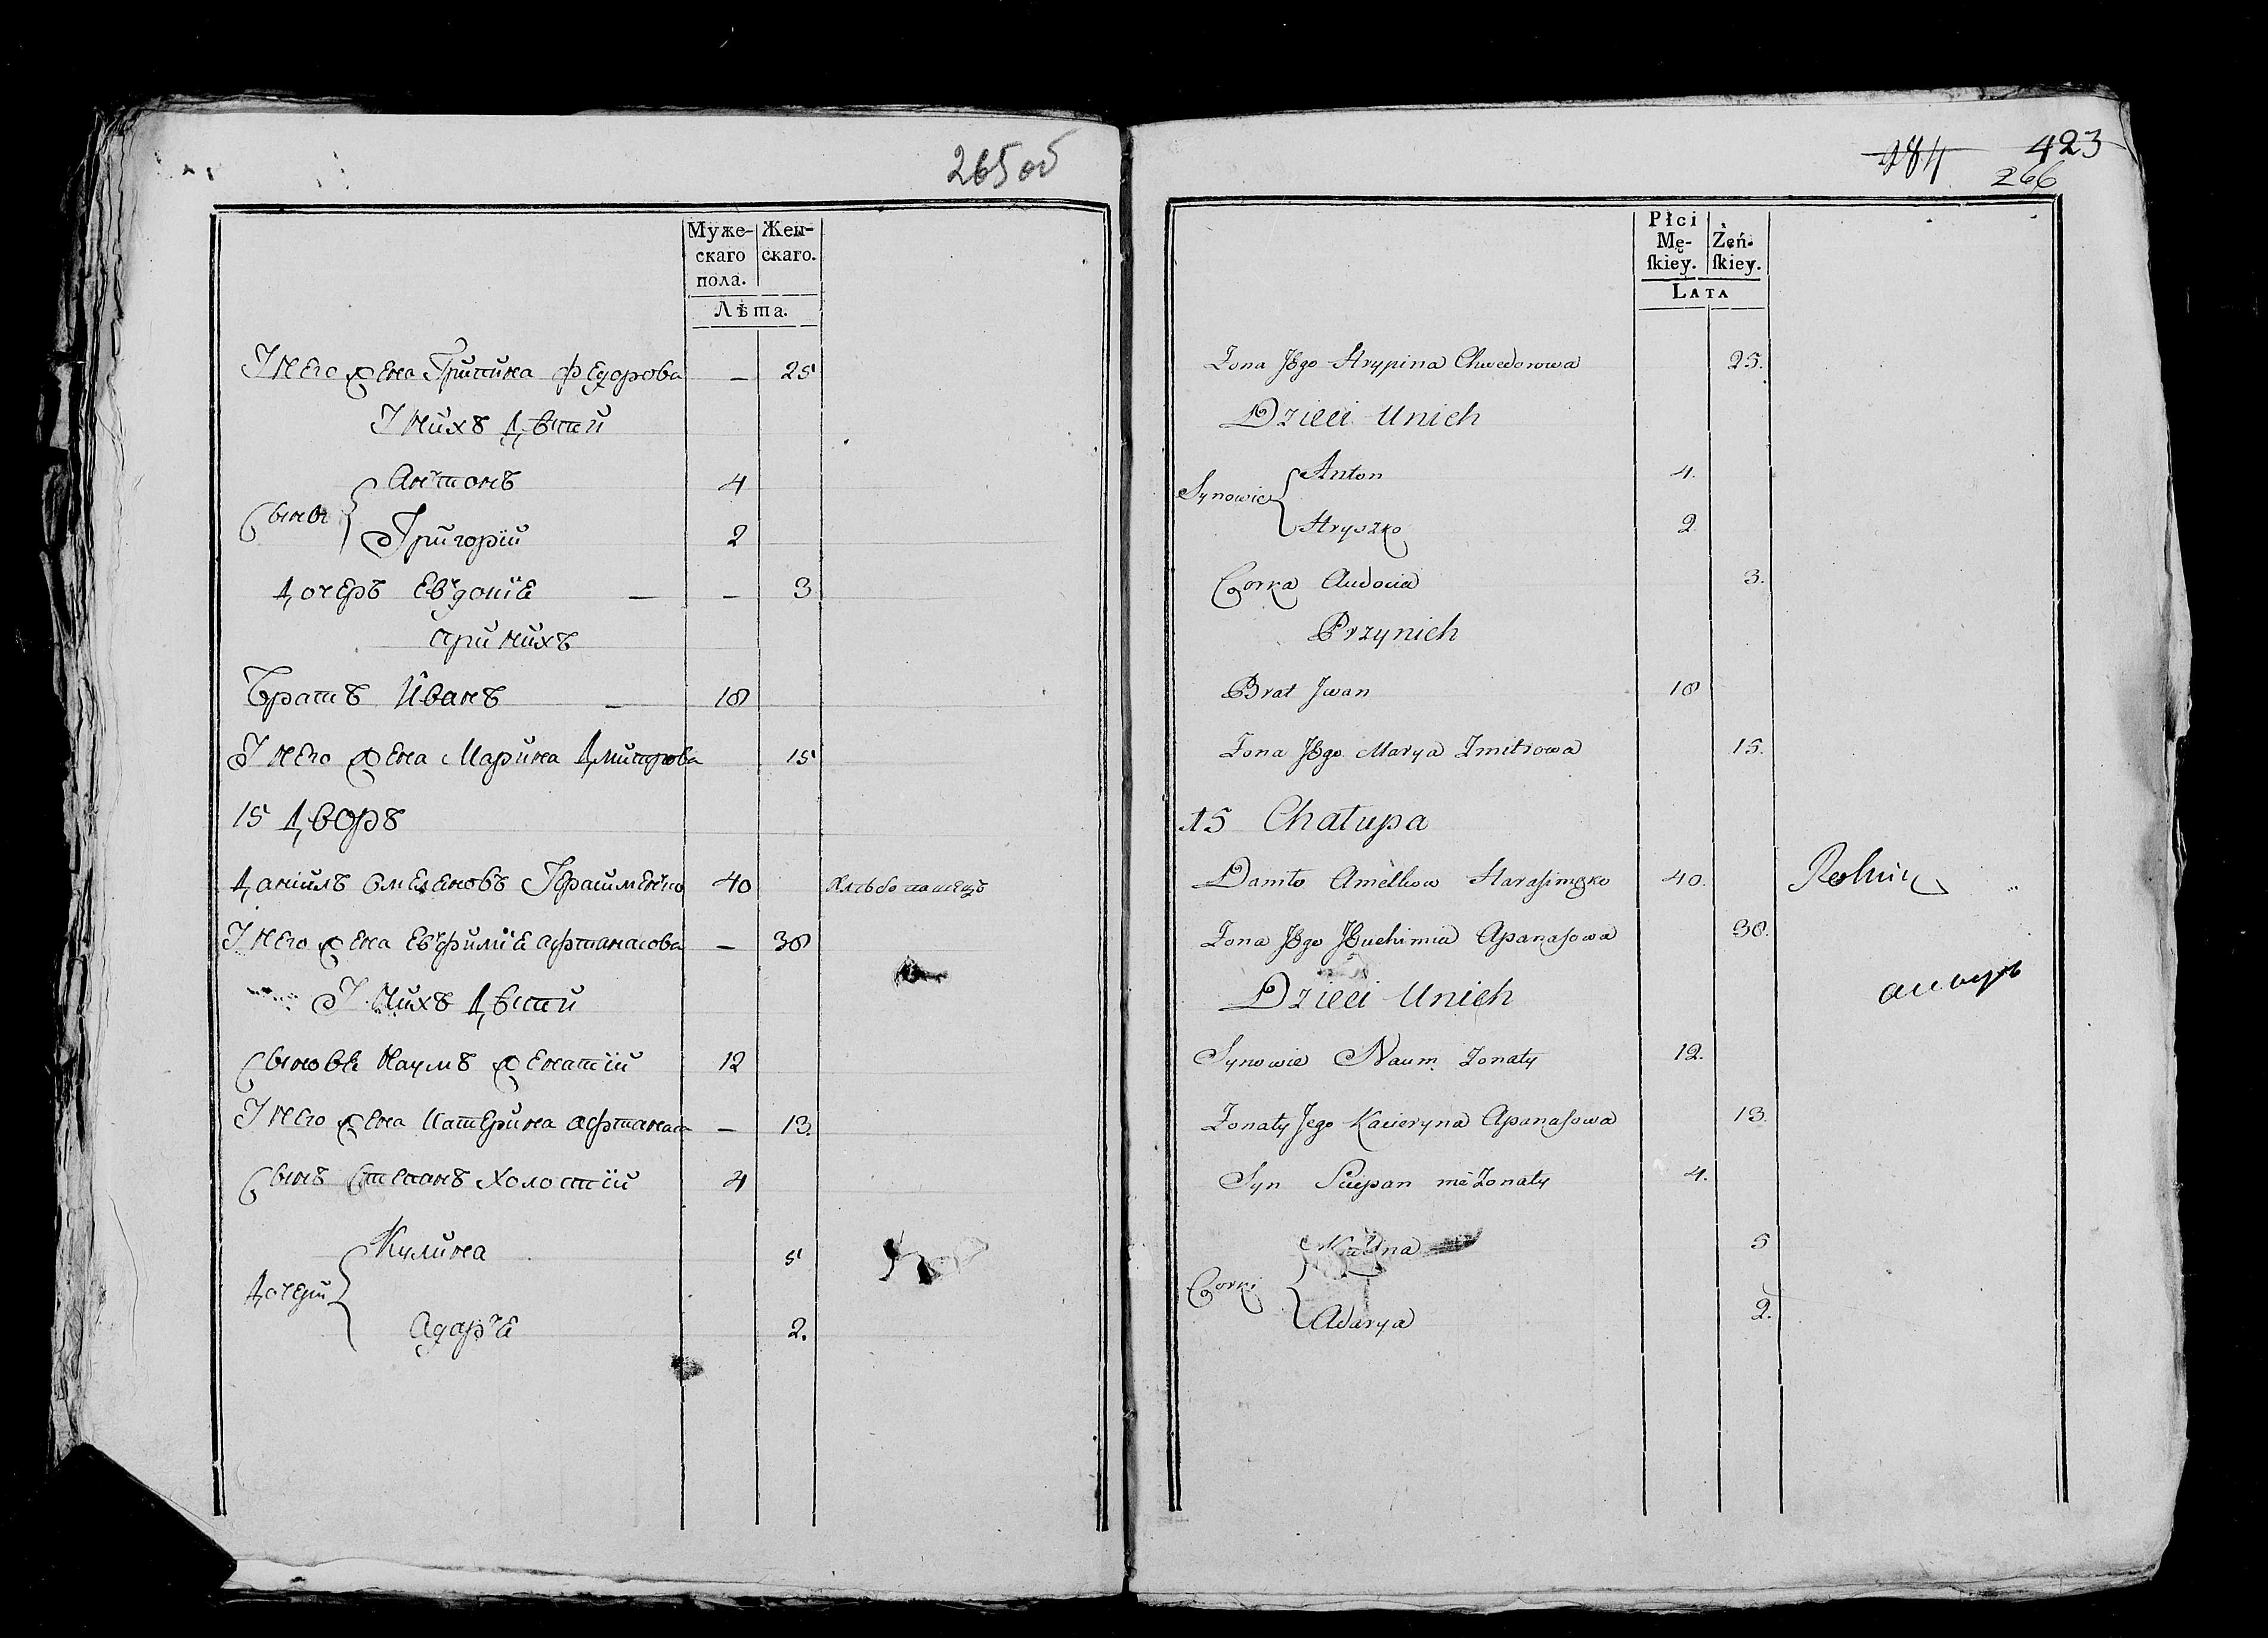 265 об
Муже-
скаго
пола.
Жен-
скаго.
Лѣта.
У него жена Грипина Федорова — 25
У нихъ дѣти
Сыны
Антонъ 4
Григорій 2
Дочеръ Евдокія — — 3
При нихъ
Братъ Иванъ — 18
У него жена Марина Дмитрова 15
15 Дворъ
Даніилъ Омеляновъ Герасименко 40
У него жена Евфимія Афтанасова — 38
У нихъ дѣти
Сыновѣ Наумъ женатій 12
У него жена Катерина Афтанаса — 13.
Сынъ Степанъ холостій 4
Дочери
Кулина 5
Адаря 2.
484 423
266
Płci
Mę-
ſkiey.
Żeń-
ſkiey.
LATA
Zona Jego Hrypina Chwedorowa 25.
Dzieci Unich
Synowie
Anton 4.
Hryszko 2
Corka Audocia 3.
Przynich
Brat Jwan 18
Zona Jego Marya Zmitrowa 15.
15 Chałupa
Daniło Amelkow Harasimęko 40. Rolnik
Zona Jego Jeuchimia Apanasowa 38.
Dzieci Unich
Synowie Naum Zonaty 12.
Zonaty Jego Kacieryna Apanasowa 13.
Syn Sciepan nie Zonaty 4.
Corki
5
Adarya 2.